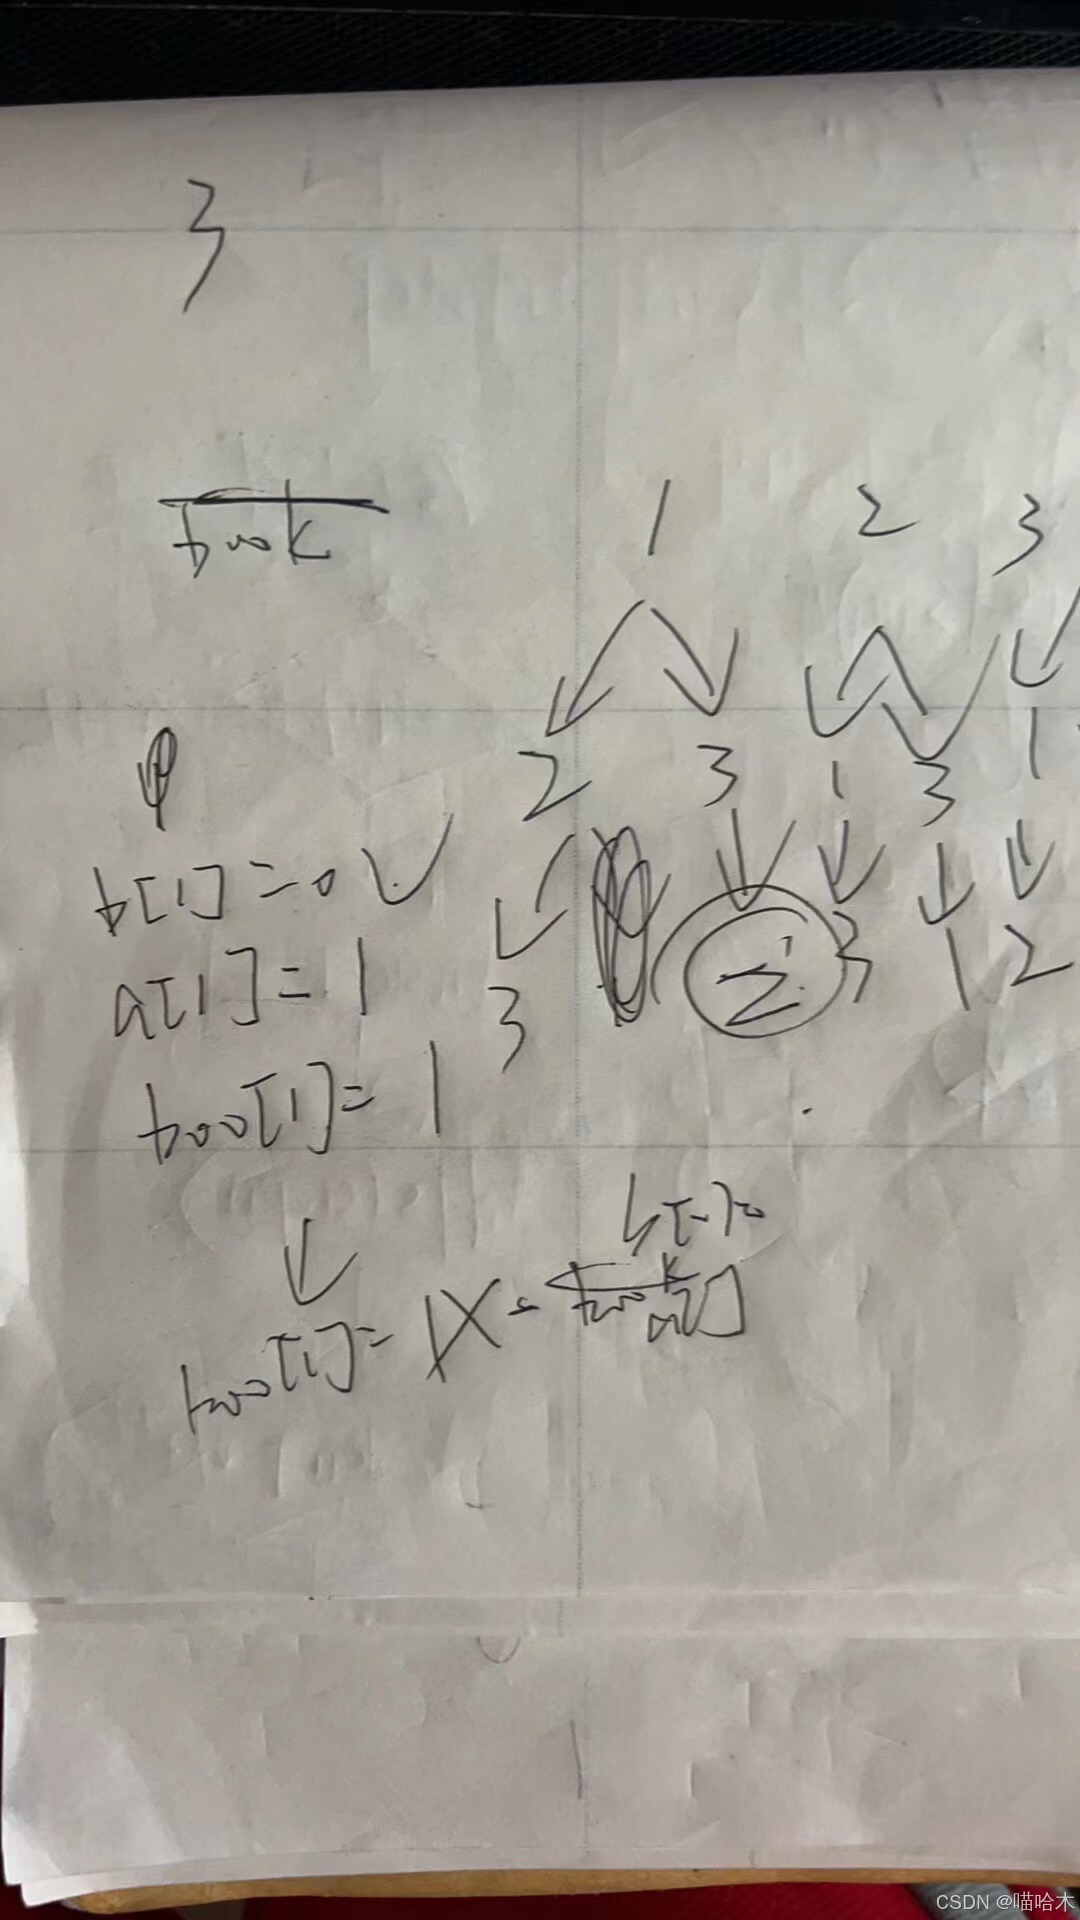 3
book
1 2 3
2 3 1 3 1
b[1]=0
a[1]=1
3 2 3 1 2
boo[1]=1
boo[1]=1
CSDN @喵哈木